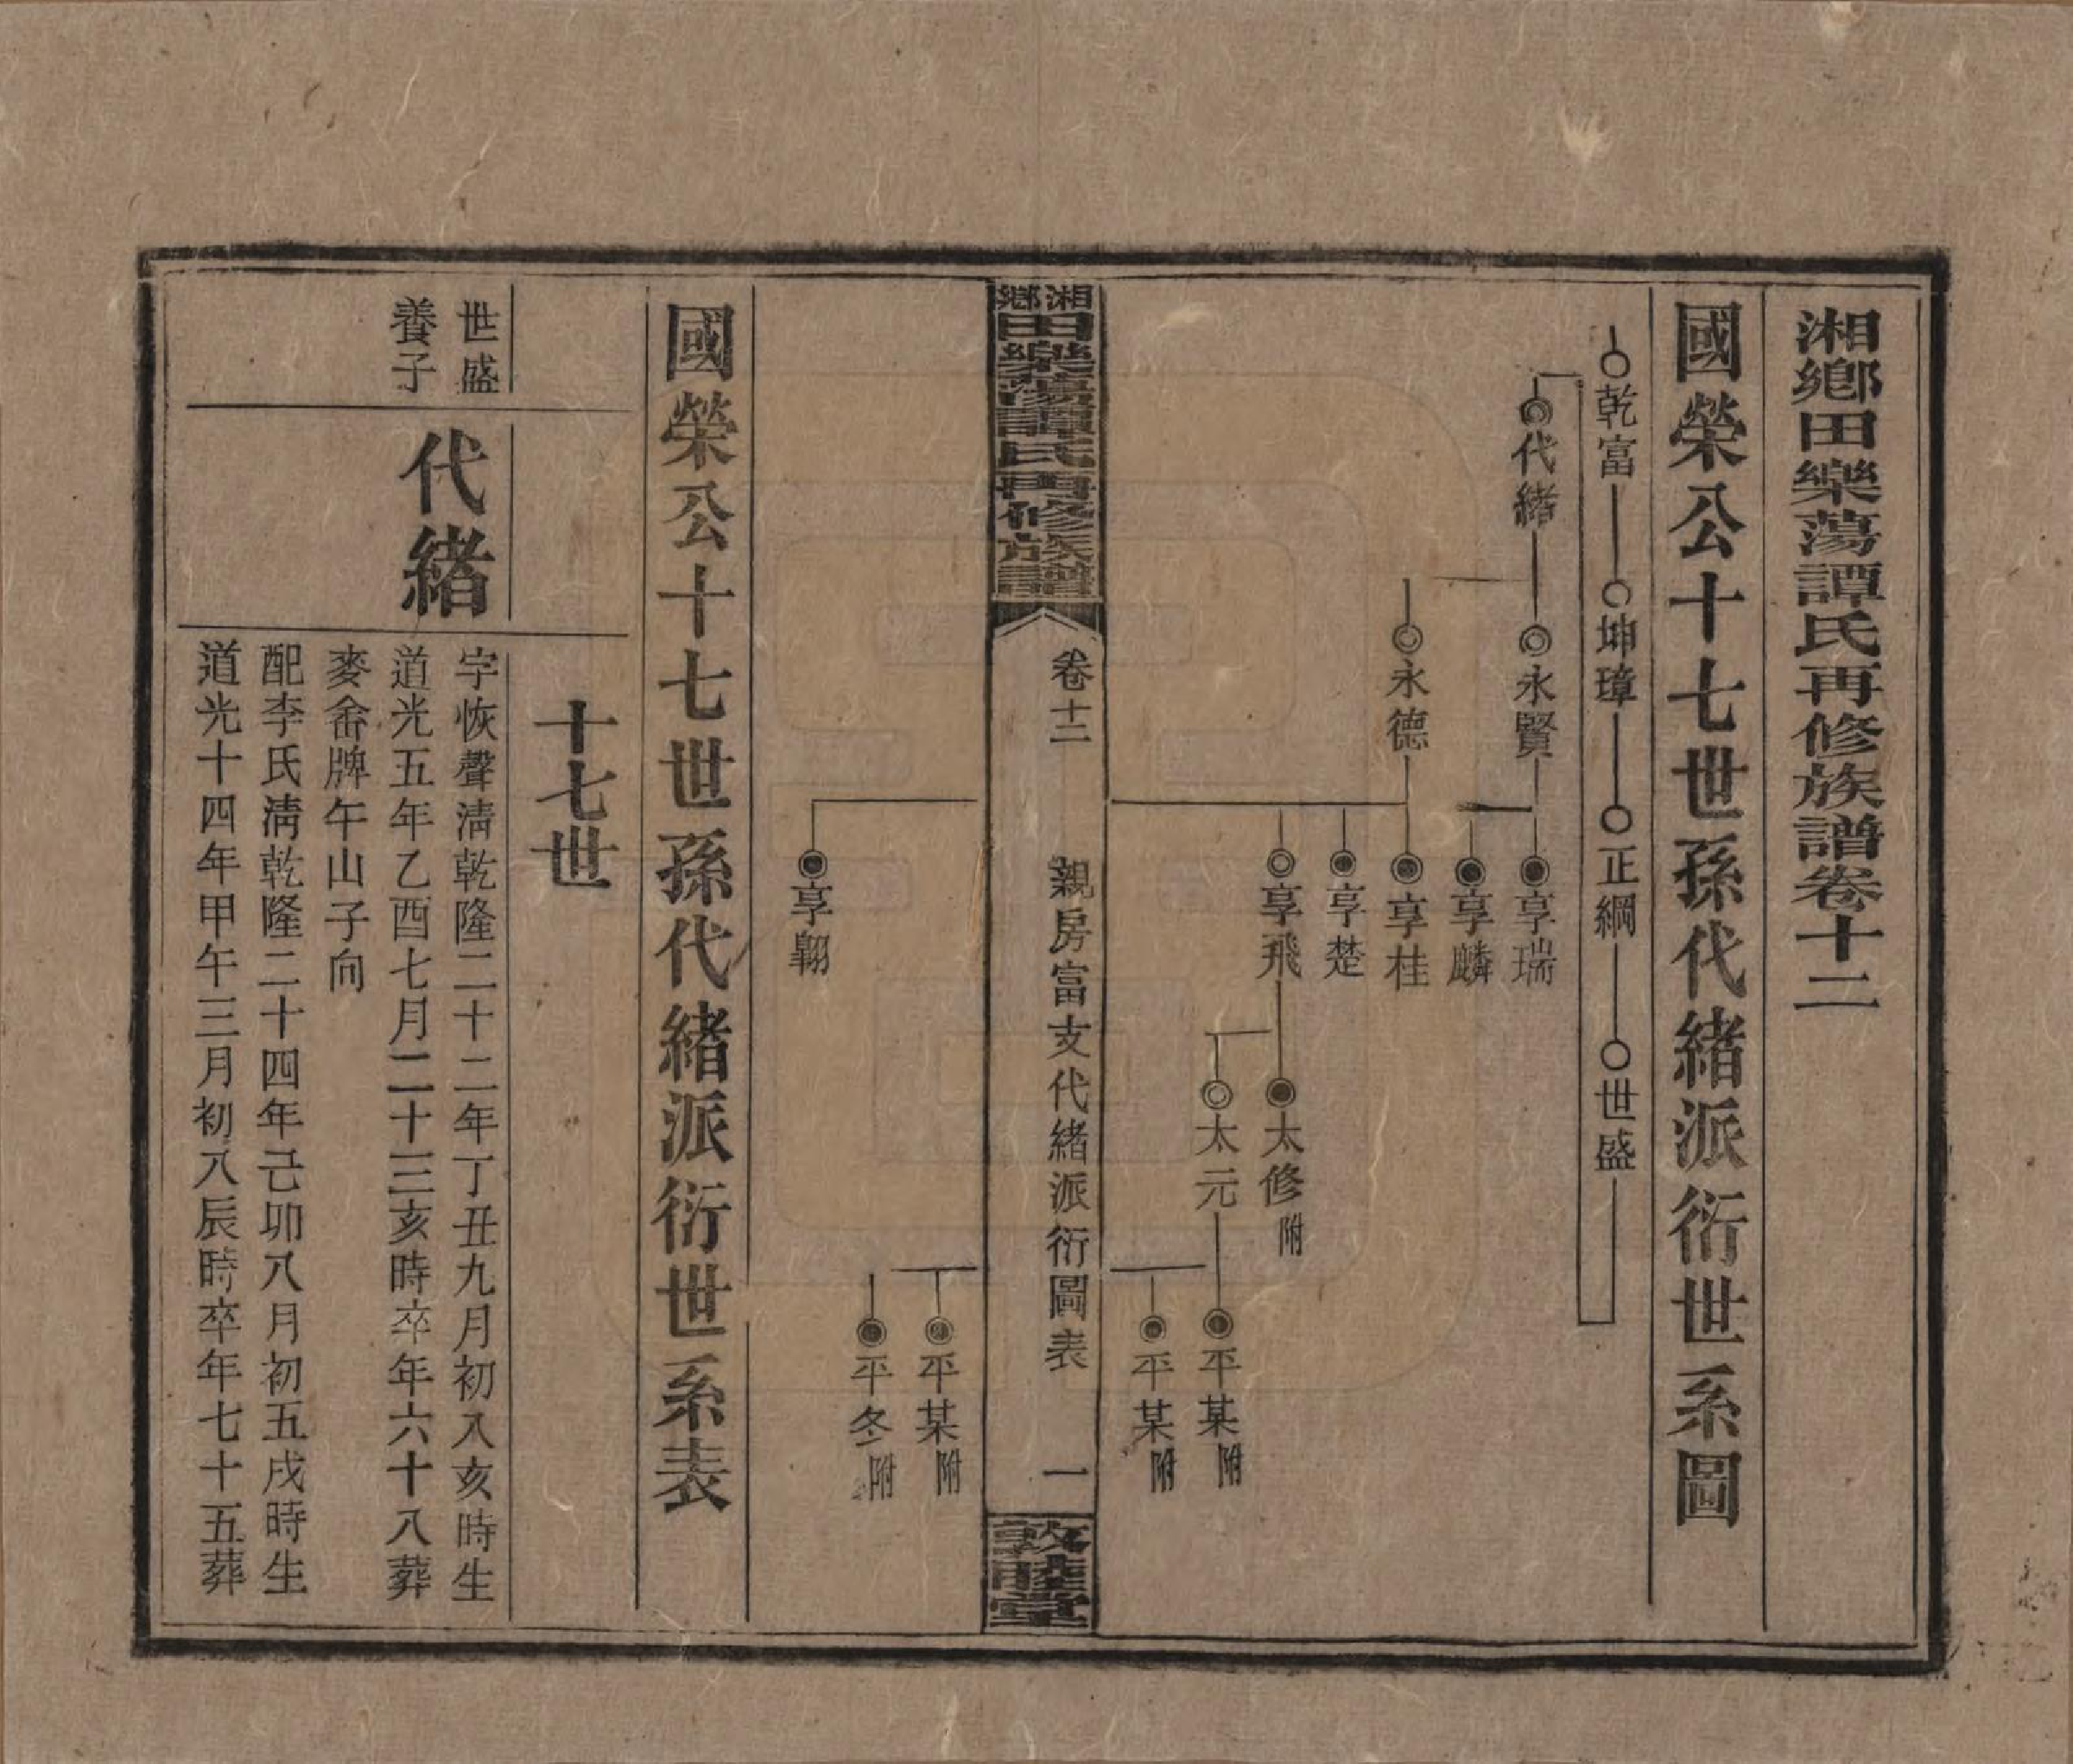 湘鄉田樂蕩譚氏再修族譜卷十二
國榮公十七世孫代緒派衍世系圖
乾富
坤璋
正綱
世盛
代緒
永賢
永德
享瑞
享麟
享桂
享楚
享飛
太修附
太元
平某附
平某附
湘鄉田樂蕩譚氏再修族譜
卷十二
親房富支代緒派衍圖表
一
敦睦堂
平某附
平冬附
享翺
國榮公十七世孫代緒派衍世系表
十七世
世盛
養子
代緒
字恢聲清乾隆二十二年丁丑九月初八亥時生
道光五年乙酉七月二十三亥時卒年六十八葬
麥畲牌午山子向
配李氏清乾隆二十四年己卯八月初五戌時生
道光十四年甲午三月初八辰時卒年七十五葬